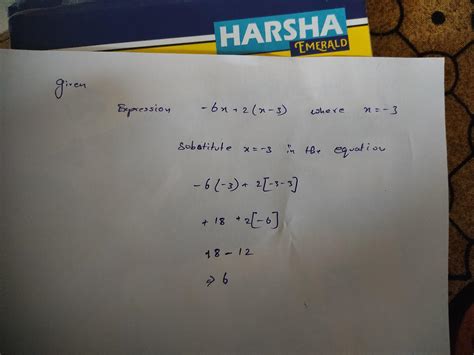 HARSHA
EMERALD
Given
Expression -6x+2(x-3) where x=-3
Substitute x=-3 in the equation
-6(-3)+2[-3-3]
+18+2[-6]
18-12
⇒ 6